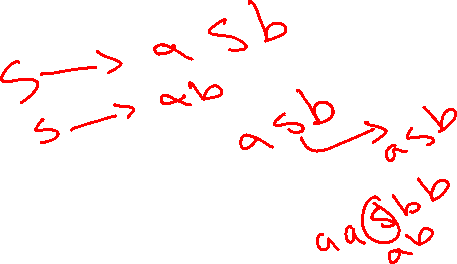 S → a S b
S → ab
a S b → a S b
a a S b b
a b